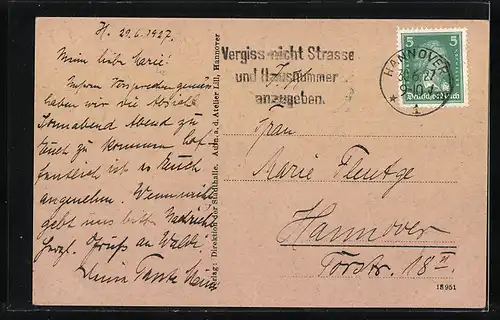 H. 29.6.1927.
Meine liebe Marie!
Unserm Versprechen gemäss
haben wir die Absicht
Sonnabend Abend zu
Euch zu kommen hof-
fentlich ist es Euch
angenehm. Wenn nicht
gebt uns bitte Nachricht
Herzl. Gruss an
Deine Tante
Verlag: Direktion der Stadthalle. Aufn. a. d. Atelier Lill, Hannover
Vergiss nicht Strasse
und Hausnummer
anzugeben.
5 5
Deutsches Reich
HANNOVER
30.6.27
9-10
* 1
Frau
Marie
Hannover
Torstr. 18 II.
18951